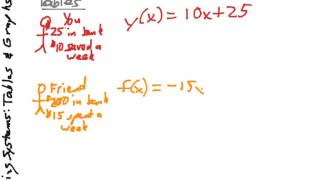 Tables
You
$25 in bank
$10 saved a
week
y(x) = 10x + 25
Friend
$200 in bank
$15 spent a
week
f(x) = -15x
ing Systems: Tables & Graphs